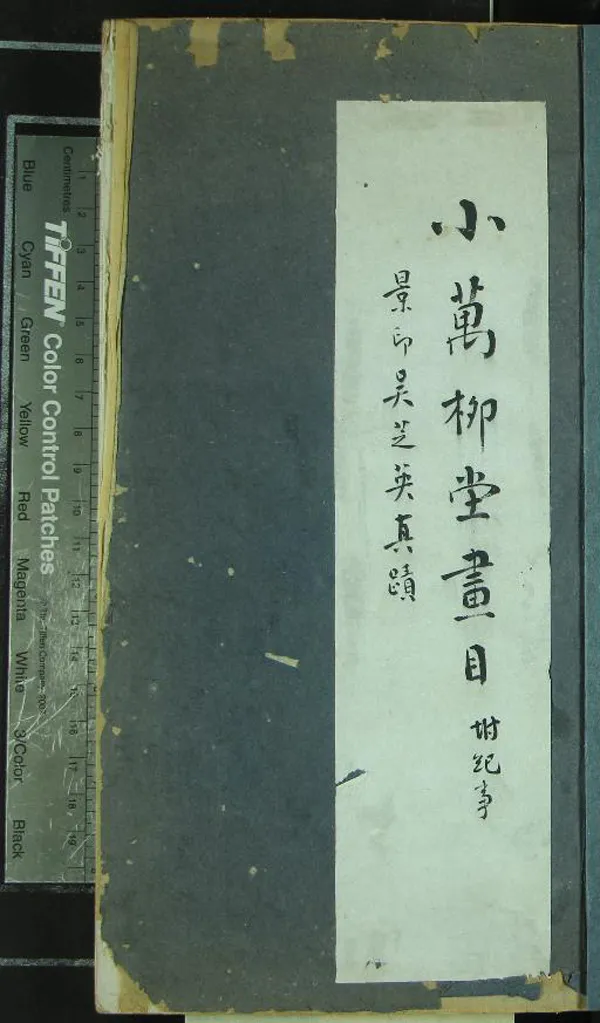 小萬柳堂畫目 坿紀事
景印吳芝英真蹟
Centimetres
1 2 3 4 5 6 7 8 9 10 11 12 13 14 15 16 17 18 19
TIFFEN® Color Control Patches
© The Tiffen Company, 2007
Blue Cyan Green Yellow Red Magenta White 3/Color Black